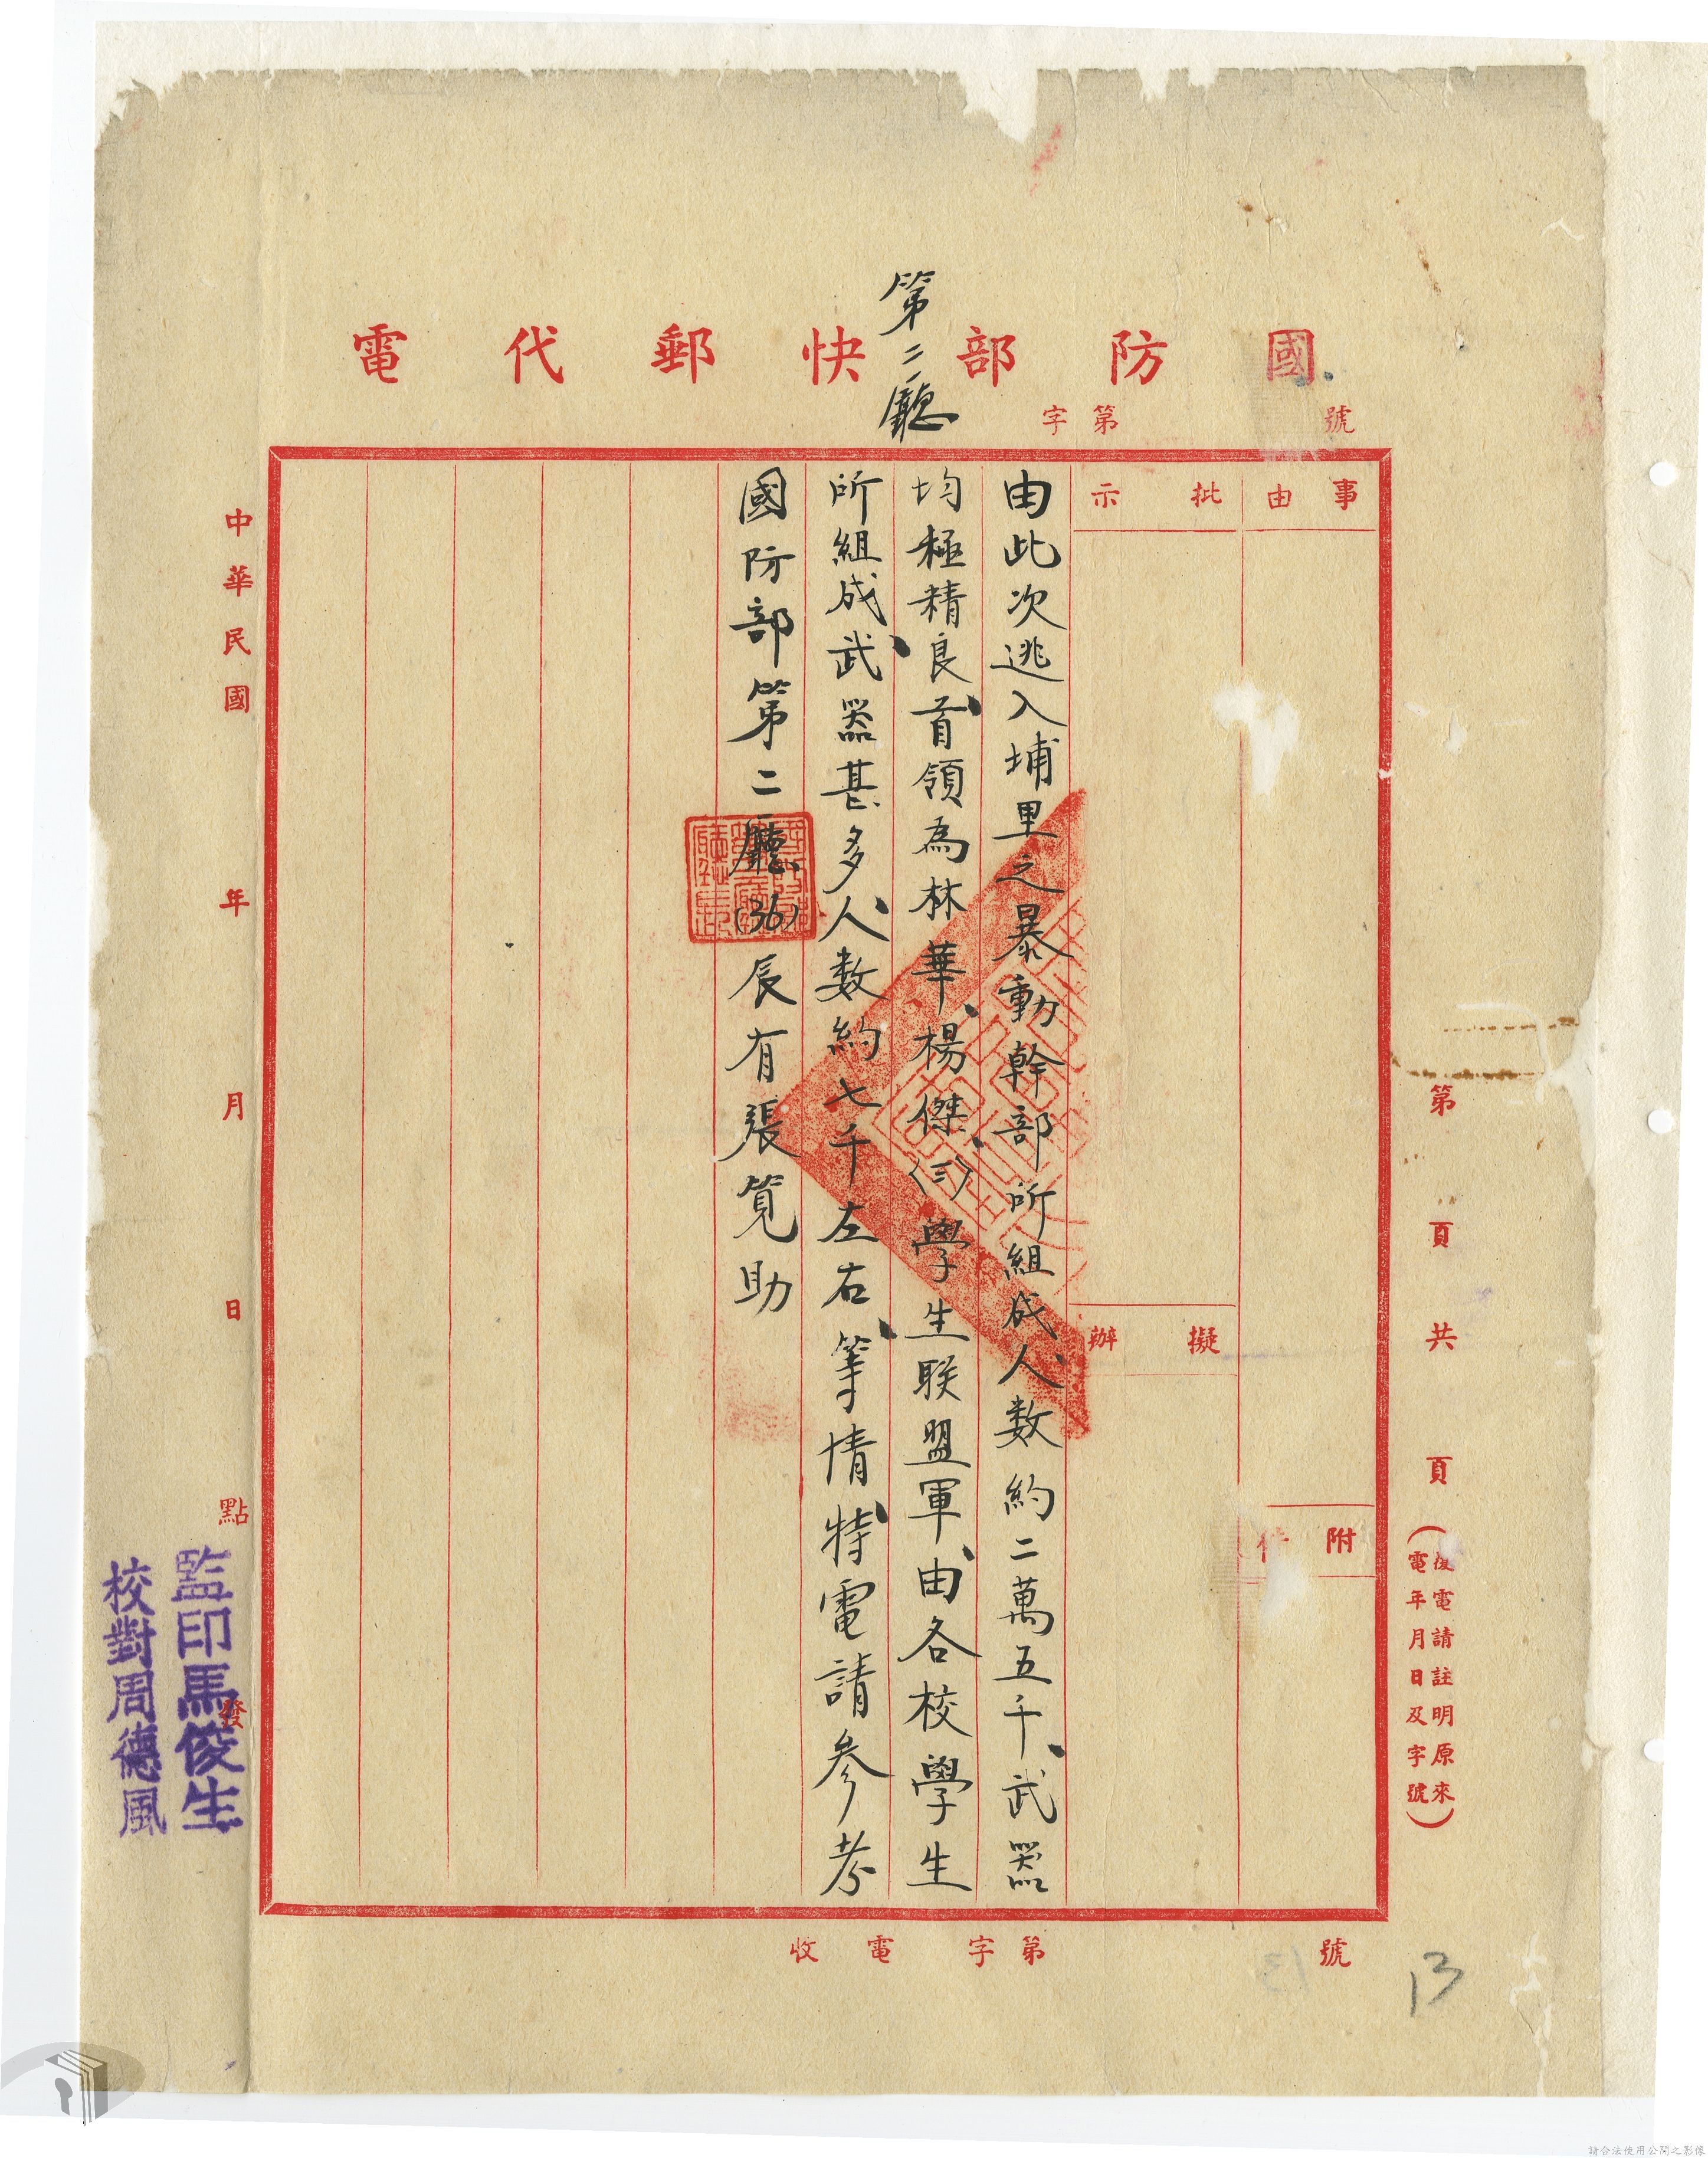 第二廳
國防部快郵代電
字第 號
事由
批示
擬辦
附件
由此次逃入埔里之暴動幹部所組成、人数約二萬五千、武器
均極精良、首領為林華、楊傑、(三)學生联盟軍、由各校學生
所組成、武器甚多、人数約七千左右、等情、特電請參考
國防部第二廳(36)辰有張筧助
中華民國 年 月 日 點 發
監印馬俊生
校對周德風
第 頁共 頁
(復電請註明原來
電年月日及字號)
收電字第 號
13
請合法使用公開之影像